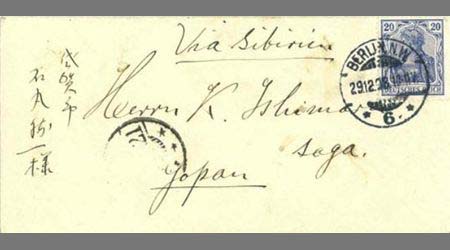 Via Sibirien
Herrn K. Ishimar
Saga.
Japan
佐賀市
石丸 一様
20 20
DEUTSCHES REICH
BERLIN N.W.
29.12.
* 6. *